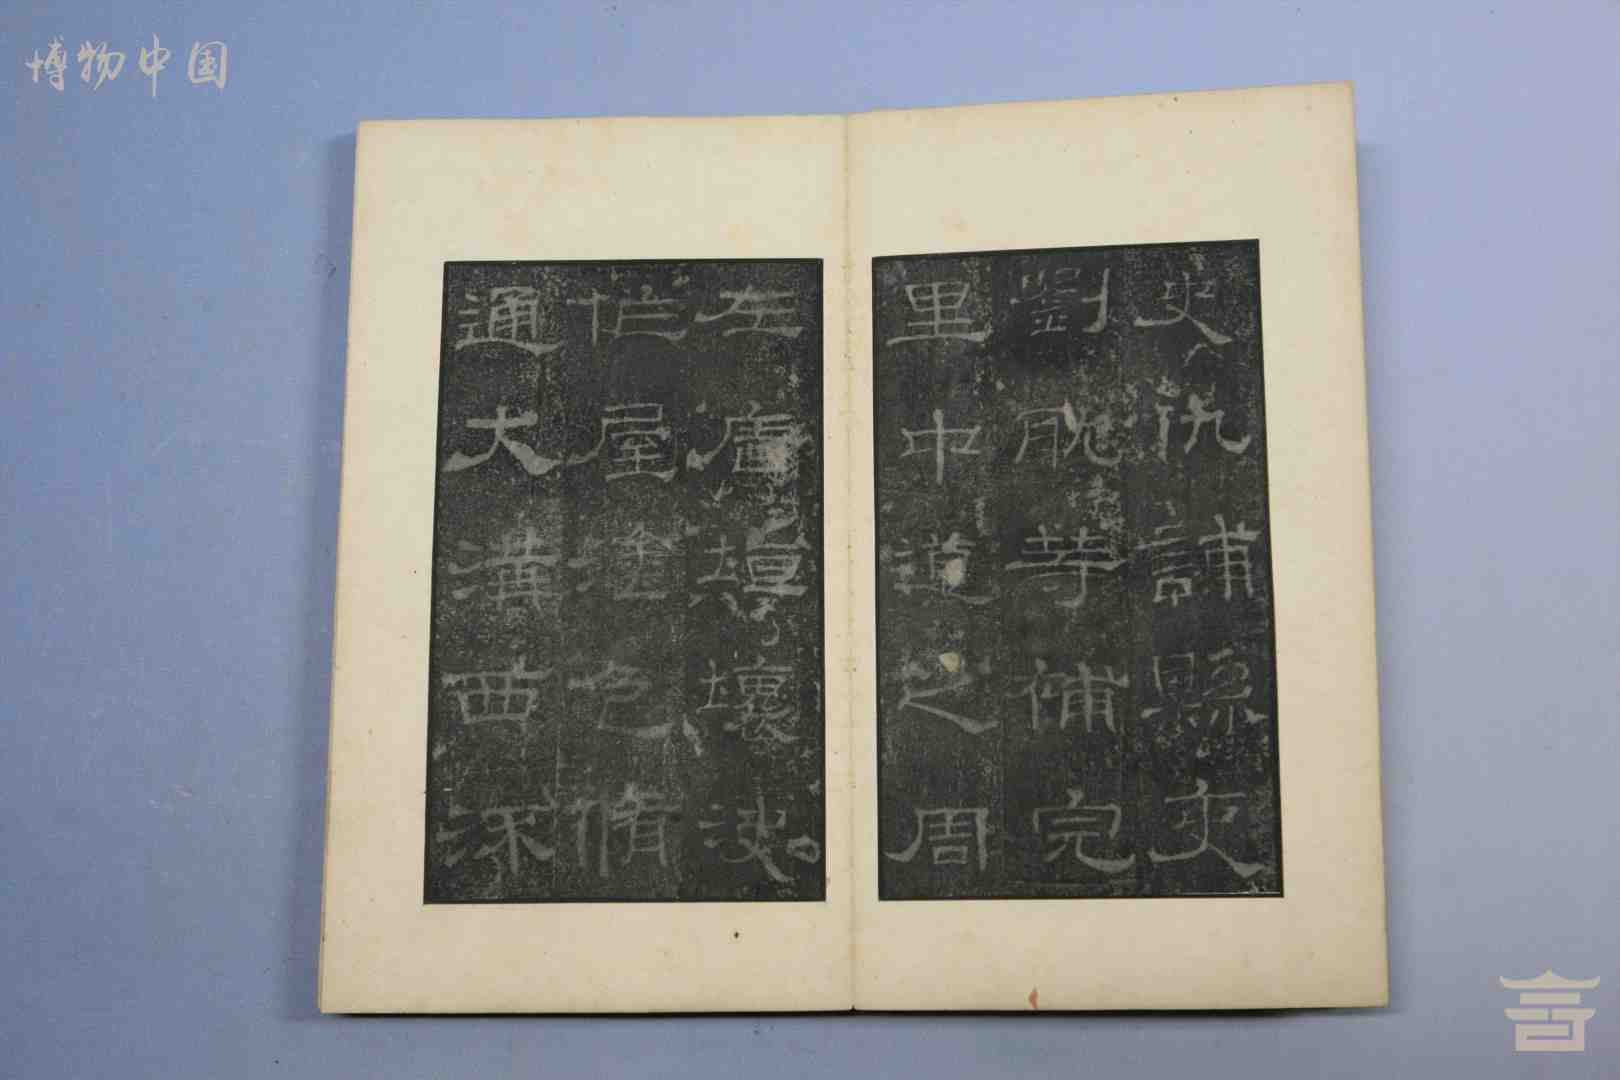 博物中国
史仇誧縣吏
劉耽等補完
里中道之周
左廧垣壞決
作屋塗色脩
通大溝西流